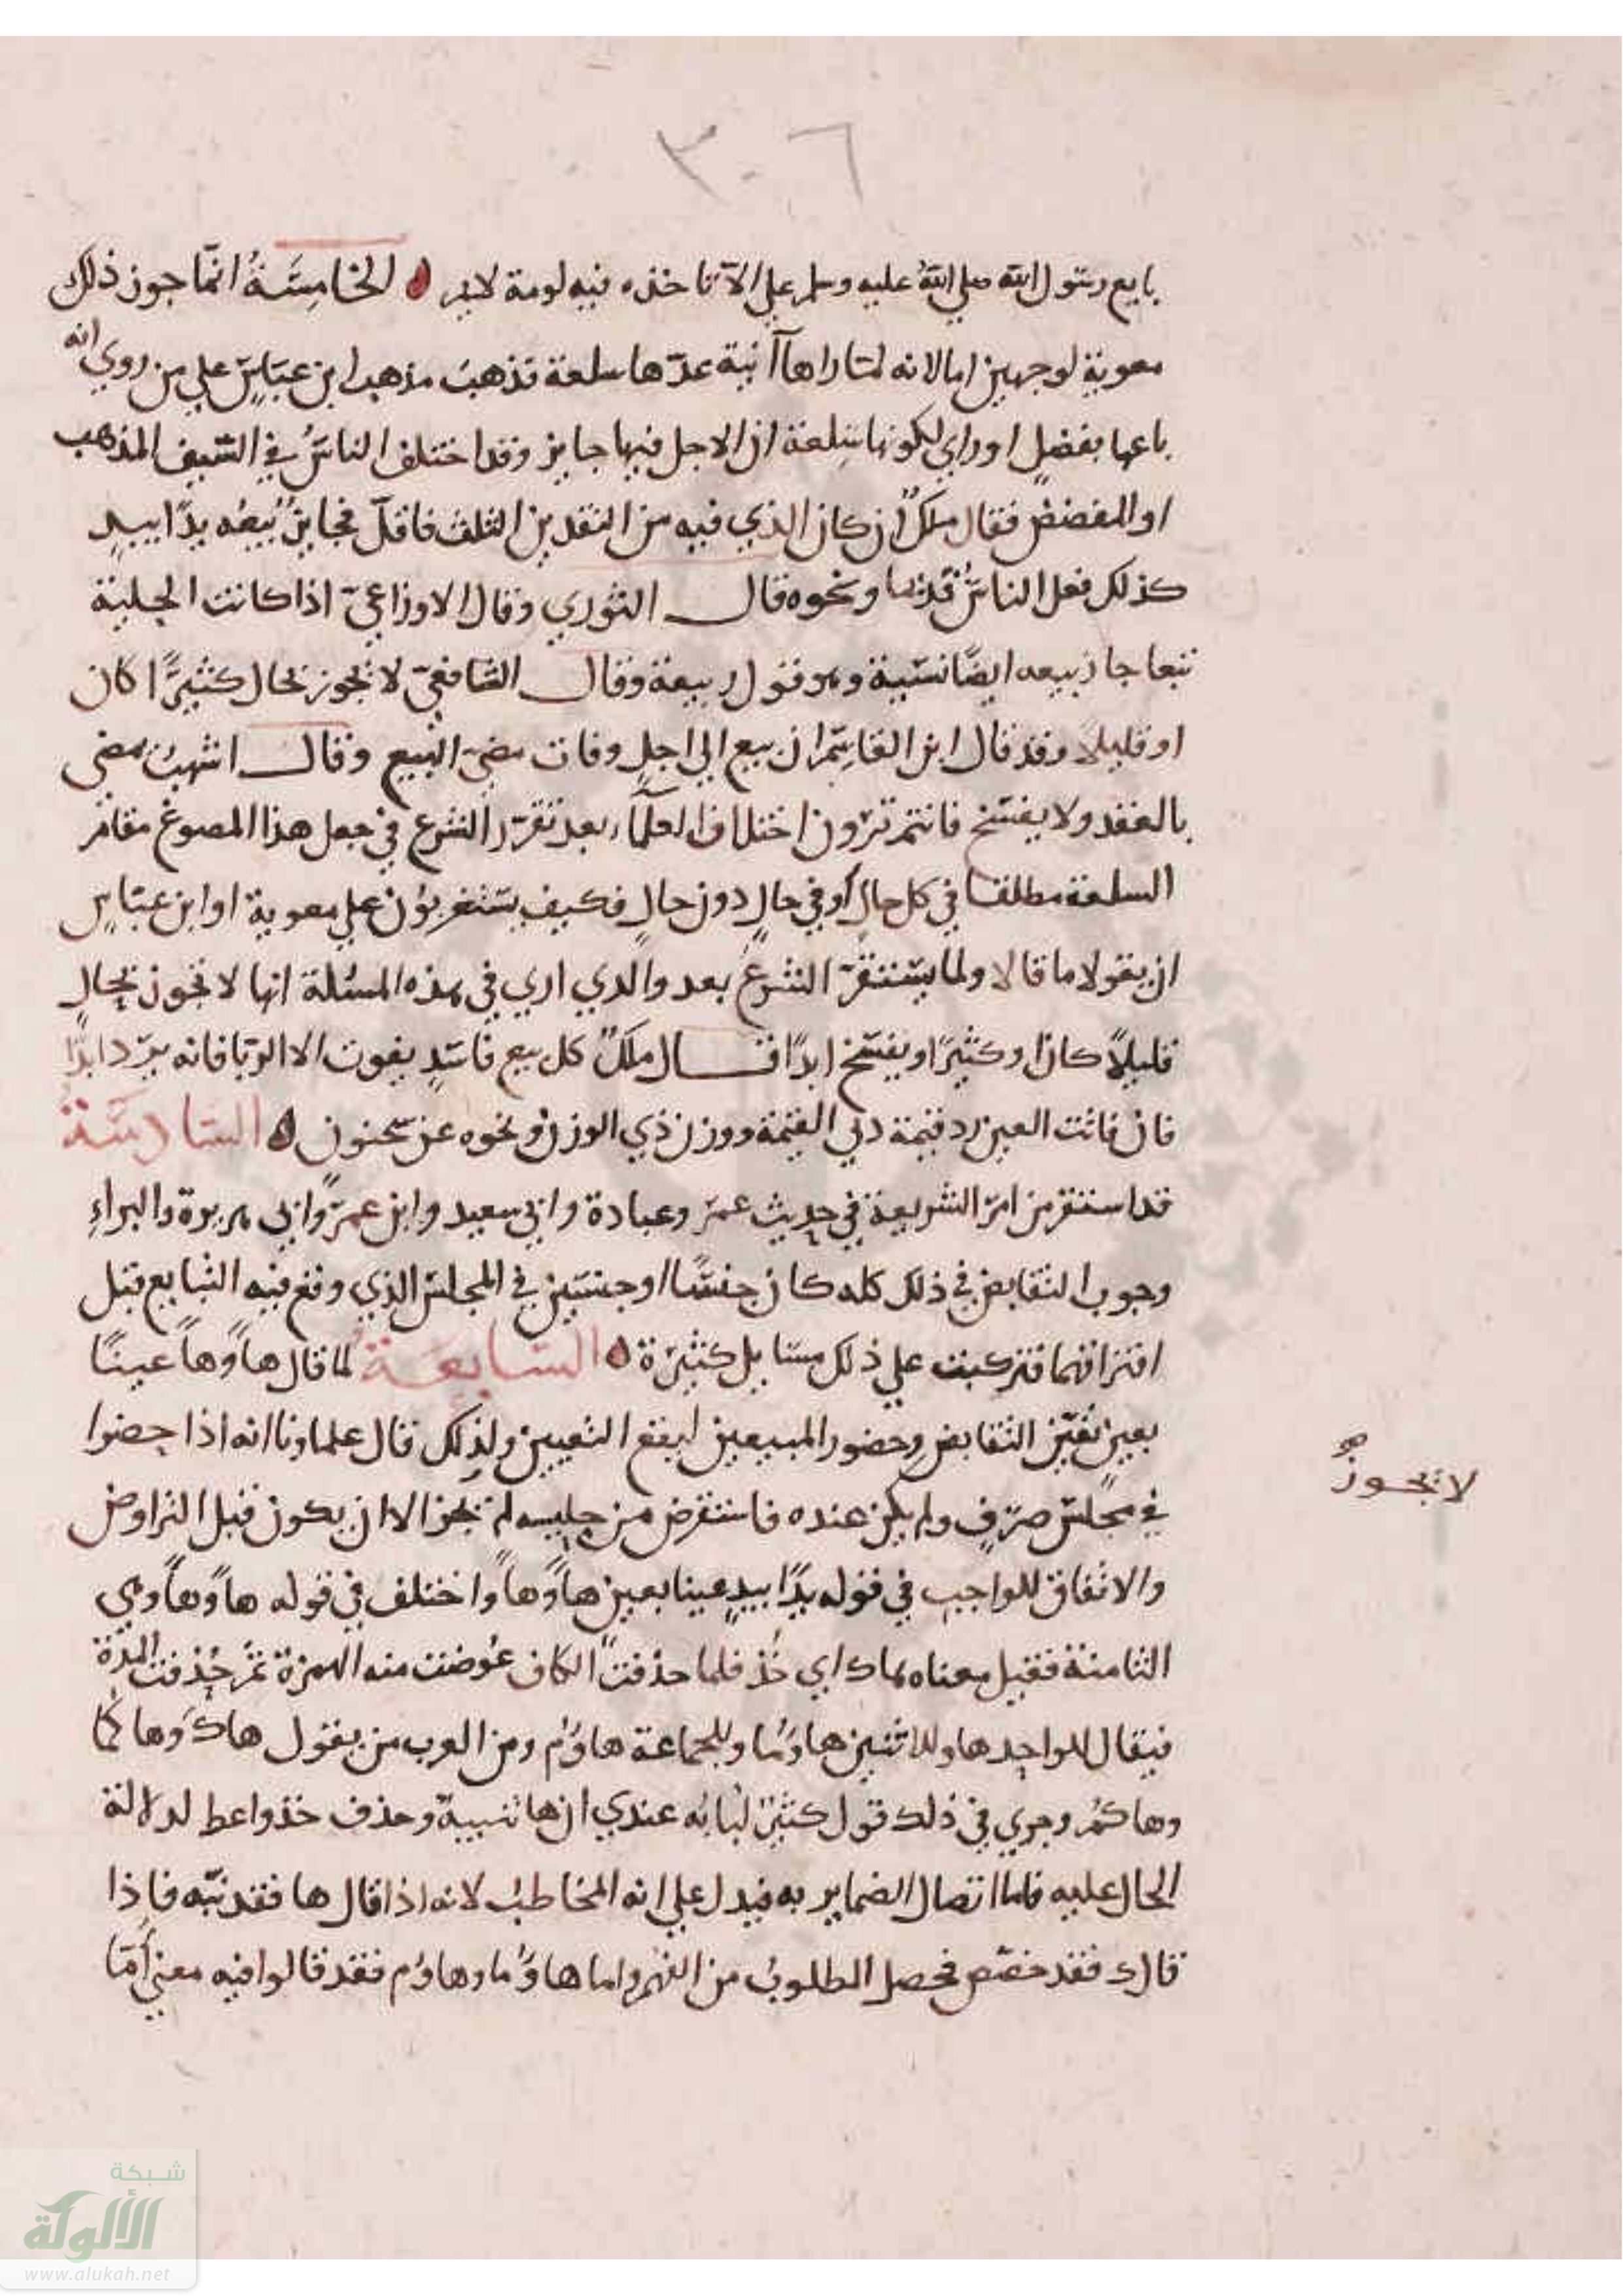 ٣٠٦
بايع رسول الله صلي الله عليه وسلم علي الا تاخذه فيه لومة لايم الخامسَةُ انمّا جوز ذلك
معوية لوجهين اما لانه لمّا راها آنية عدّها سلعة فذهبَ مذهب ابن عبّاسٍ علي من روي انه
باعها بفضلٍ او راي لكونها سِلعة ان الاجل فيها جايز وقد اختلف الناسُ في السّيف المذهب
او المفضض فقال ملكٌ ان كان الذي فيه من النقدين الثلث فاقلّ فجايزٌ بيعُه يدًا بيدٍ
كذلك فعل الناسُ قديما ونحوه قال الثوري وقال الاوزاعيّ اذا كانت الحلية
تبعا جاز بيعه ايضًا نسّيئة وهو قول ربيعة وقال الشافعيّ لا يجوز بحال كثيرًا كان
او قليلا وقد قال ابن القاسِم ان بيع الي اجلٍ وفات مضيَ البيع وقال اشهبُ يمضي
بالعقد ولا يفسّخ فانتم ترون اختلاف العلمآء بعد تقرّر الشرع في جعل هذا المصوغ مقام
السلعة مطلقا في كل حال او في حالٍ دون حالٍ فكيف يستغربون علي معوية او ابن عبّاسٍ
ان يقولا ما قالا ولما يستقرّ الشرعُ بعد والذي اري في هذه المسئلة انها لا تجوز بحالٍ
قليلاً كان او كثيرًا ويفسّخ ابدًا قال ملكٌ كل بيع فاسدٍ يفوت الا الربا فانه يردّ ابدًا
فان فاتت العين رد قيمة ذي القيمة ووزن ذي الوزن ونحوه عن سحنون السّادسَةُ
قد استقر من امر الشريعة في حديث عمر وعبادة وابي سعيد وابن عمر وابي هريرة والبراءِ
وجوب التقابض في ذلك كله كان جنسًا او جنسين في المجلس الذي وقع فيه التبايع قبل
افتراقهما فتركبت علي ذلك مسّايل كثيرة السّابعَةُ لما قال هاءً وهاءً عينًا
بعين تعيّن التقابض وحضور المبيعين ليقع التعيين ولذلك قال علماونا انه اذا حضرا
لا يجوزُ
في مجلس صرّفٍ ولم يكن عنده فاستقرض من جليسه لم يجز الا ان يكون قبل التراوض
والاتفاق للواجب في قوله يدًا بيدٍ عينا بعين هاءً وهاءً واختلف في قوله هاءً وهاءً وهي
الثامنة فقيل معناه هاك اي خُذ فلما حذفت الكاف عُوضت منه الهمزة ثم حُذفت المدّة
فيقال للواحد ها وللاثنين هاوُما وللجماعة هاوُم ومن العرب من يقول هاكَ وهاكما
وهاكمُ وجري في ذلك قول كثيرٌ لبابُه عندي ان ها تنبيهٌ وحذف خذ واعط لدلالة
الحال عليه فاما اتصال الضماير به فيدل علي انه المخاطبُ لانه اذا قال ها فقد نبّه فاذا
قال ك فقد خصّص فحصل المطلوبُ من الفهم واما هاوُما وهاوُم فقد قالوا فيه معني أُمّا
شبكة
الألوكة
www.alukah.net